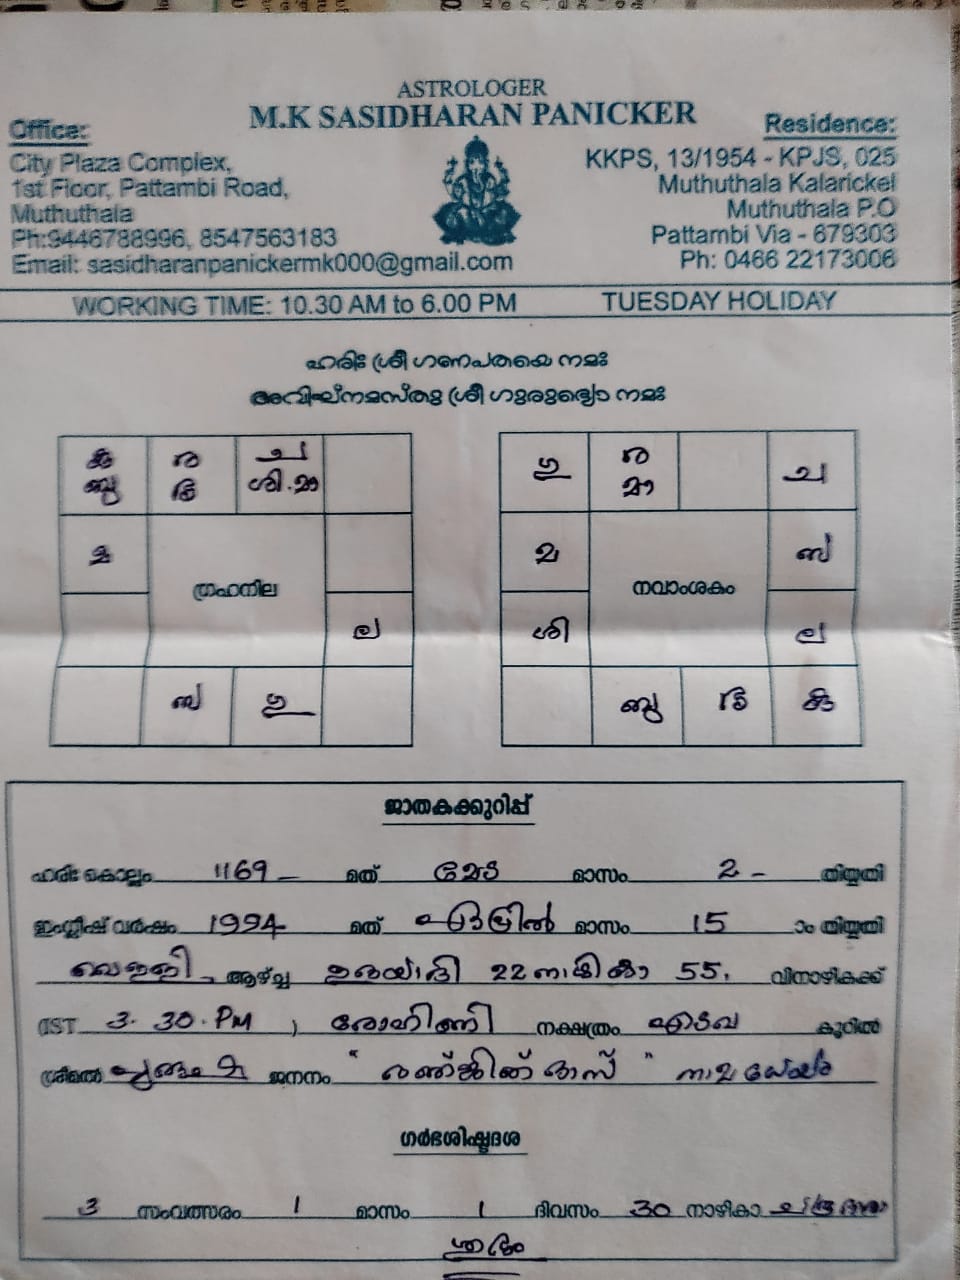 ASTROLOGER
M.K SASIDHARAN PANICKER
Office:
City Plaza Complex,
1st Floor, Pattambi Road,
Muthuthala
Ph:9446788996, 8547563183
Email: sasidharanpanickermk000@gmail.com
Residence:
KKPS, 13/1954 - KPJS, 025
Muthuthala Kalarickel
Muthuthala P.O
Pattambi Via - 679303
Ph: 0466 22173006
WORKING TIME: 10.30 AM to 6.00 PM TUESDAY HOLIDAY
ഹരിഃ ശ്രീ ഗണപതയെ നമഃ
അവിഘ്നമസ്തു ശ്രീ ഗുരുഭ്യോ നമഃ
കു ര ച
ബു ശി.മാ
മ
ഗ്രഹനില
ല
സ ഗു
ഗു ര ച
മാ
മ സ
നവാംശകം
ശി ല
ബു കു
ജാതകക്കുറിപ്പ്
ഹരിഃ കൊല്ലം 1169 മത് മേട മാസം 2 തിയ്യതി
ഇംഗ്ലീഷ് വർഷം 1994 മത് ഏപ്രിൽ മാസം 15 ാം തിയ്യതി
വെള്ളി ആഴ്ച്ച ഉദയാദി 22 നാഴിക 55 വിനാഴികക്ക്
(IST 3.30.PM ) രോഹിണി നക്ഷത്രം എടവ കൂറിൽ
ജനനം
ഗർഭശിഷ്ടദശ
3 സംവത്സരം 1 മാസം 1 ദിവസം 30 നാഴികാ
ശുഭം